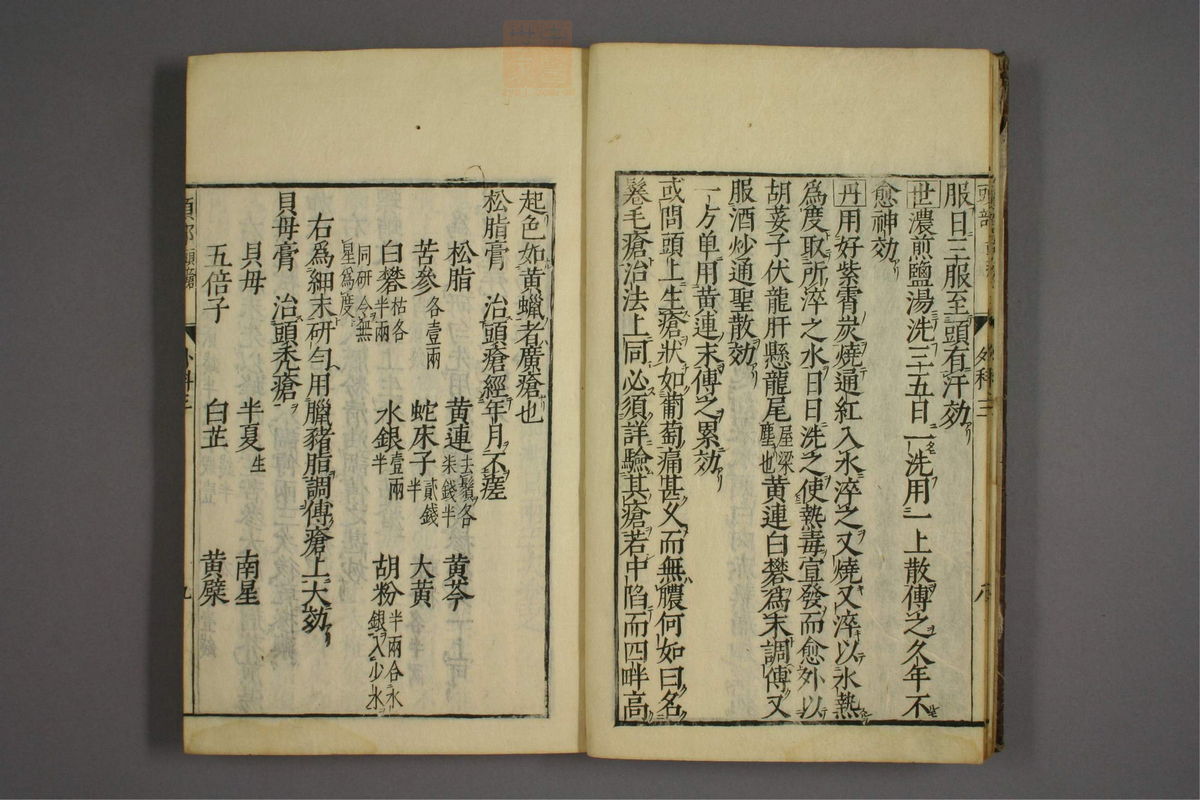 頭部
外科三
八
服日三服至頭有汗効
世濃煎鹽湯洗三五日一洗用一上散傅之久年不
愈神効
丹用好紫霄炭燒通紅入水淬之又燒又淬以水熱
爲度取所淬之水日日洗之使熱毒宣發而愈外以
胡荽子伏龍肝懸龍尾屋梁塵也黄連白礬爲末調傅又
服酒炒通聖散効
一方单用黄連末傅之累効
或問頭上生瘡狀如葡萄痛甚父而無膿何如曰名
鬈毛瘡治法上同必須詳驗其瘡若中陷而四畔高
起色如黄蠟者廣瘡也
松脂膏 治頭瘡經年月不瘥
松脂 黄連去鬚各柒錢半 黄芩
苦參各壹兩 蛇床子貳錢半 大黄
白礬枯各半兩 水銀壹兩半 胡粉半兩合水銀入少水
同研令無星爲度
右爲細末研匀用臘豬脂調傅瘡上大効
貝母膏 治頭禿瘡
貝母 半夏生 南星
五倍子 白芷 黄檗
外科三
九